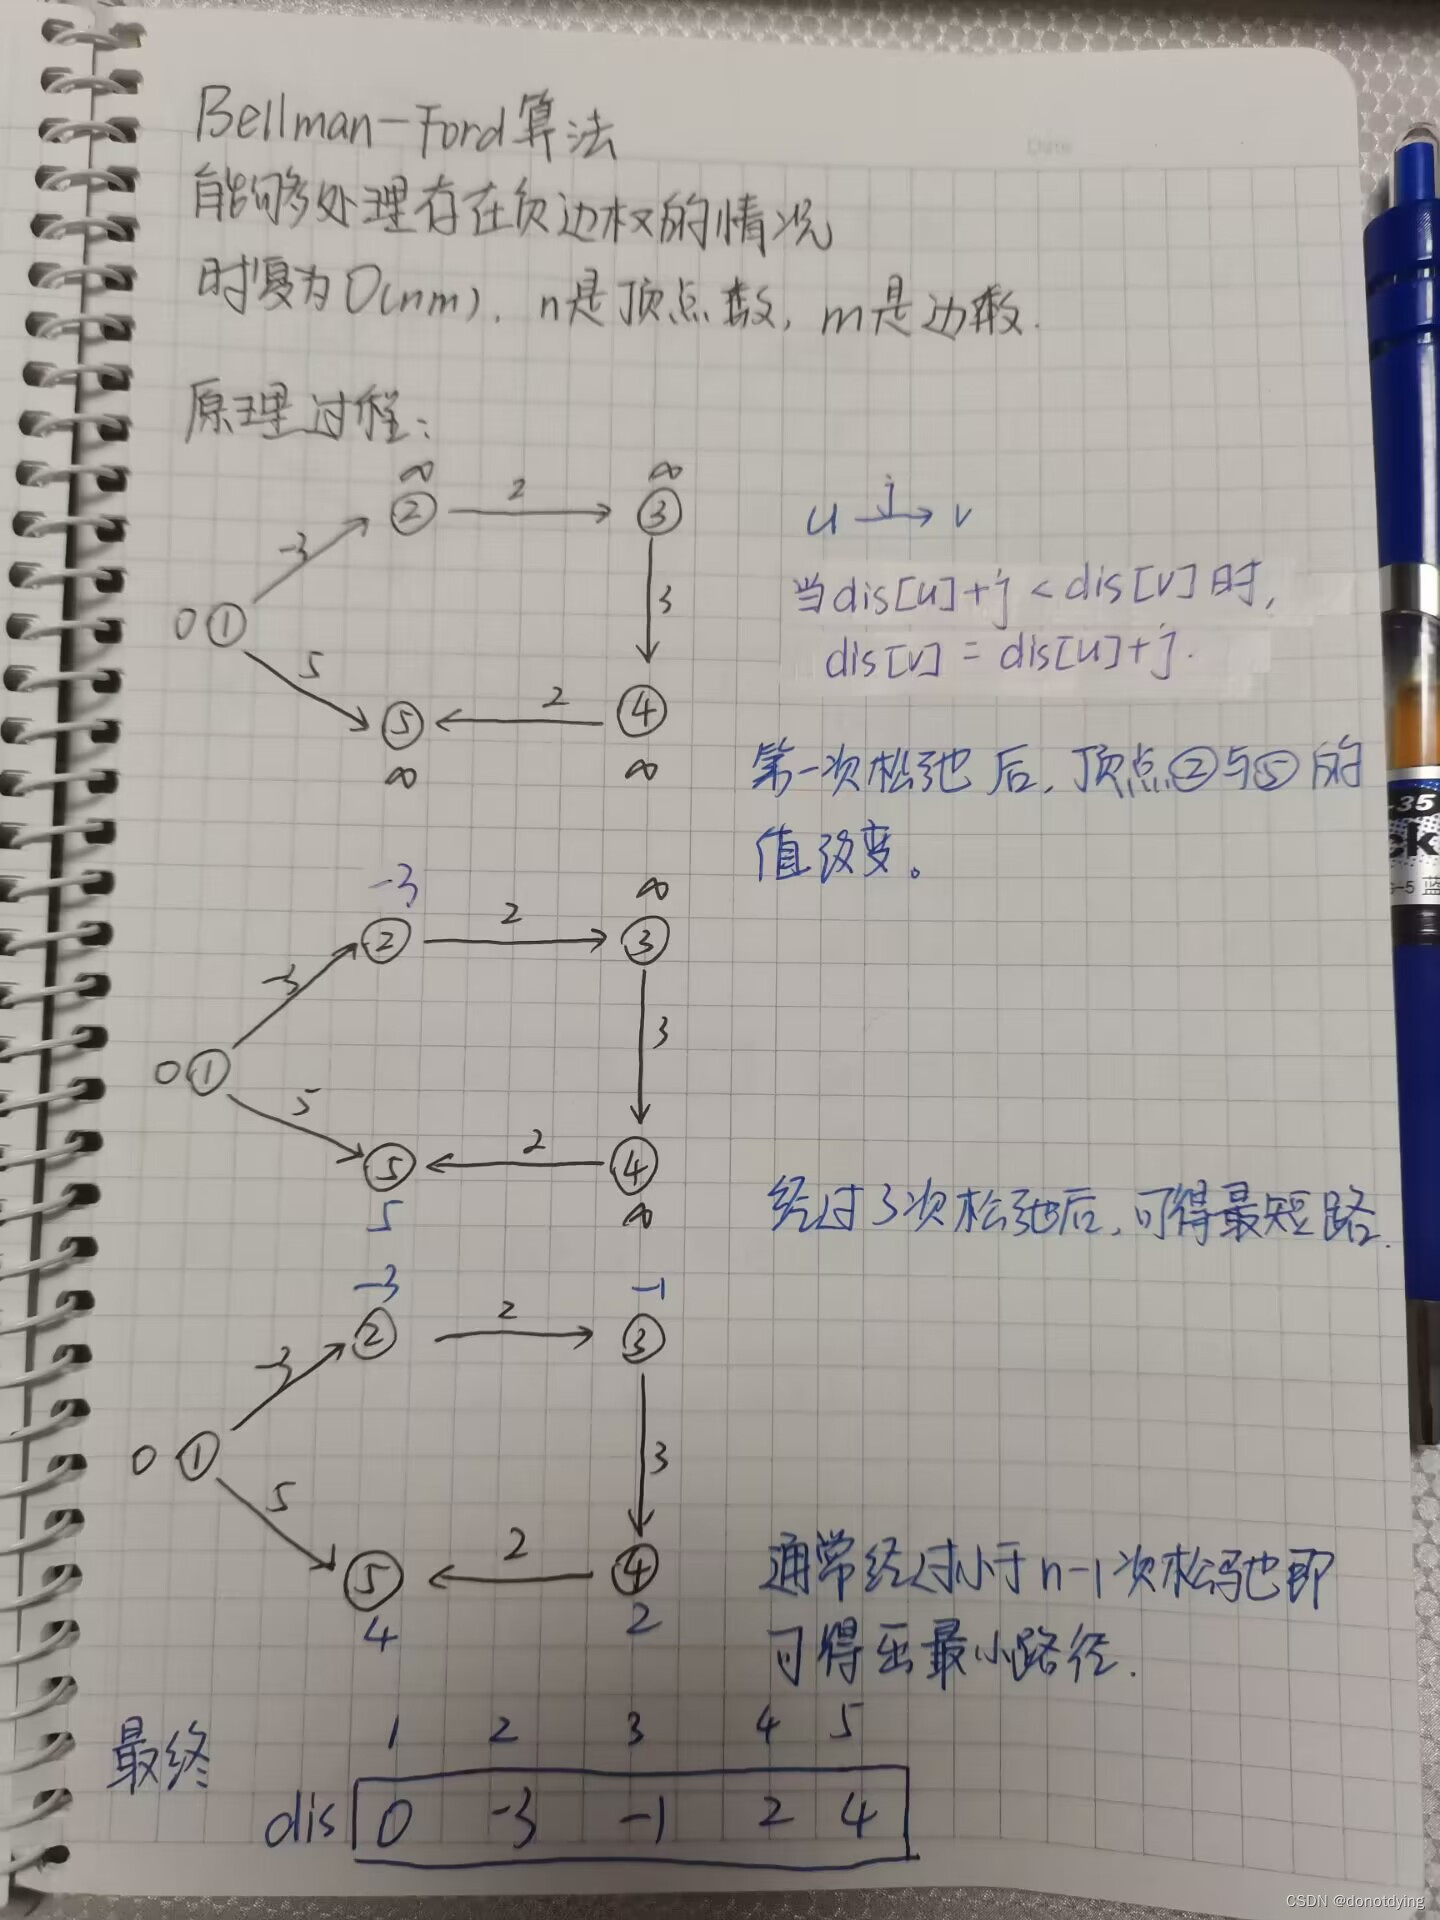 Date
Bellman-Ford算法
能够处理存在负边权的情况
时复为O(nm), n是顶点数, m是边数.
原理过程:
∞ ∞
② 2 ③
-3
0 ① 3
5
⑤ 2 ④
∞ ∞
u j v
当dis[u]+j < dis[v]时,
dis[v] = dis[u]+j.
第一次松弛后, 顶点②与⑤的
值改变。
-3 ∞
② 2 ③
-3
0 ① 3
5
⑤ 2 ④
5 ∞
经过3次松弛后, 可得最短路.
-3 -1
② 2 ③
-3
0 ① 3
5
⑤ 2 ④
4 2
通常经过小于n-1次松弛即
可得出最小路径.
最终 1 2 3 4 5
dis 0 -3 -1 2 4
-35
ck
-5 蓝
CSDN @donotdying